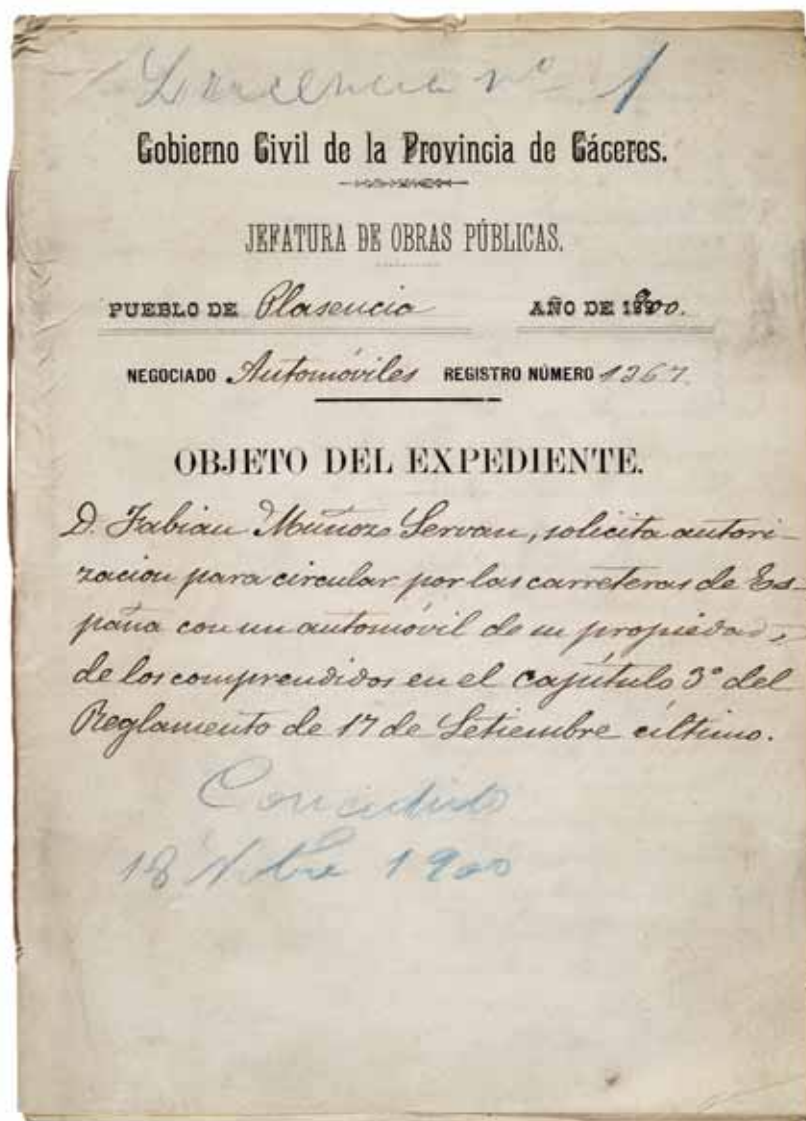 Licencia nº 1
Gobierno Civil de la Provincia de Cáceres.
JEFATURA DE OBRAS PÚBLICAS.
PUEBLO DE Plasencia AÑO DE 1900.
NEGOCIADO Automóviles REGISTRO NÚMERO 1267
OBJETO DEL EXPEDIENTE.
D. Fabian Muñoz Servan, solicita autori-
zacion para circular por las carreteras de Es-
paña con un automóvil de su propiedad,
de los comprendidos en el capítulo 3º del
Reglamento de 17 de Setiembre último.
Concedida
18 Nbre 1900